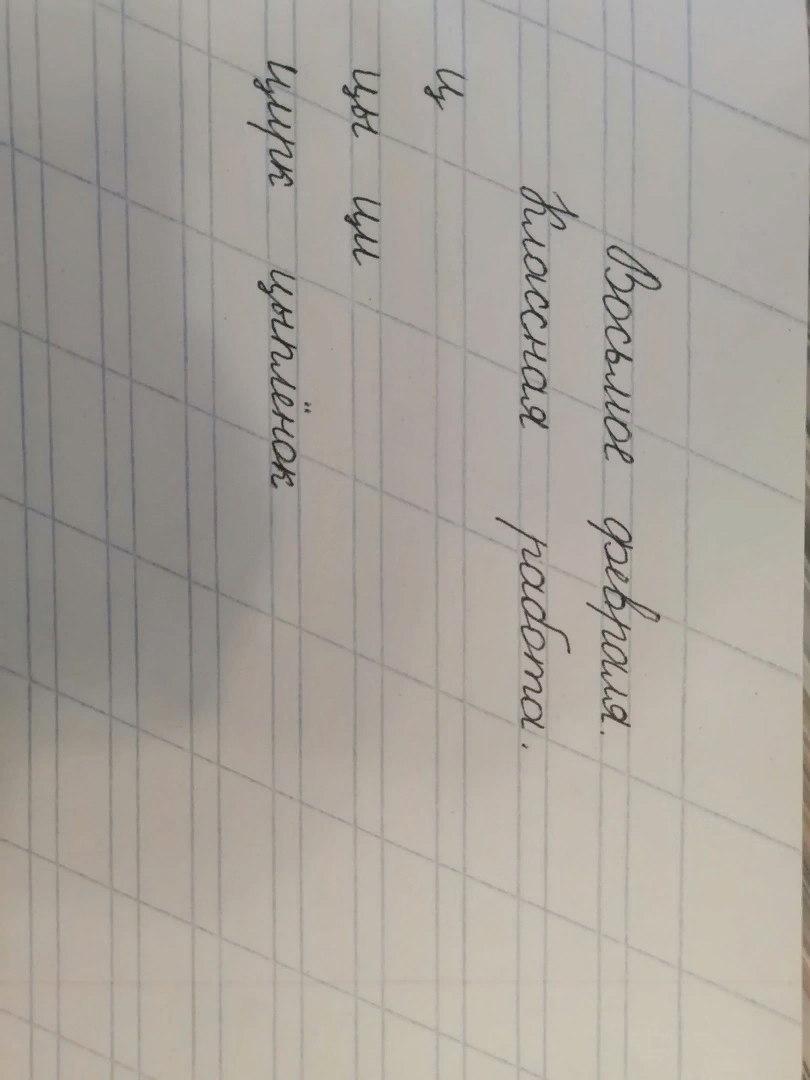 Восьмое февраля.
Классная работа.
ц
цы ци
цирк цыплёнок